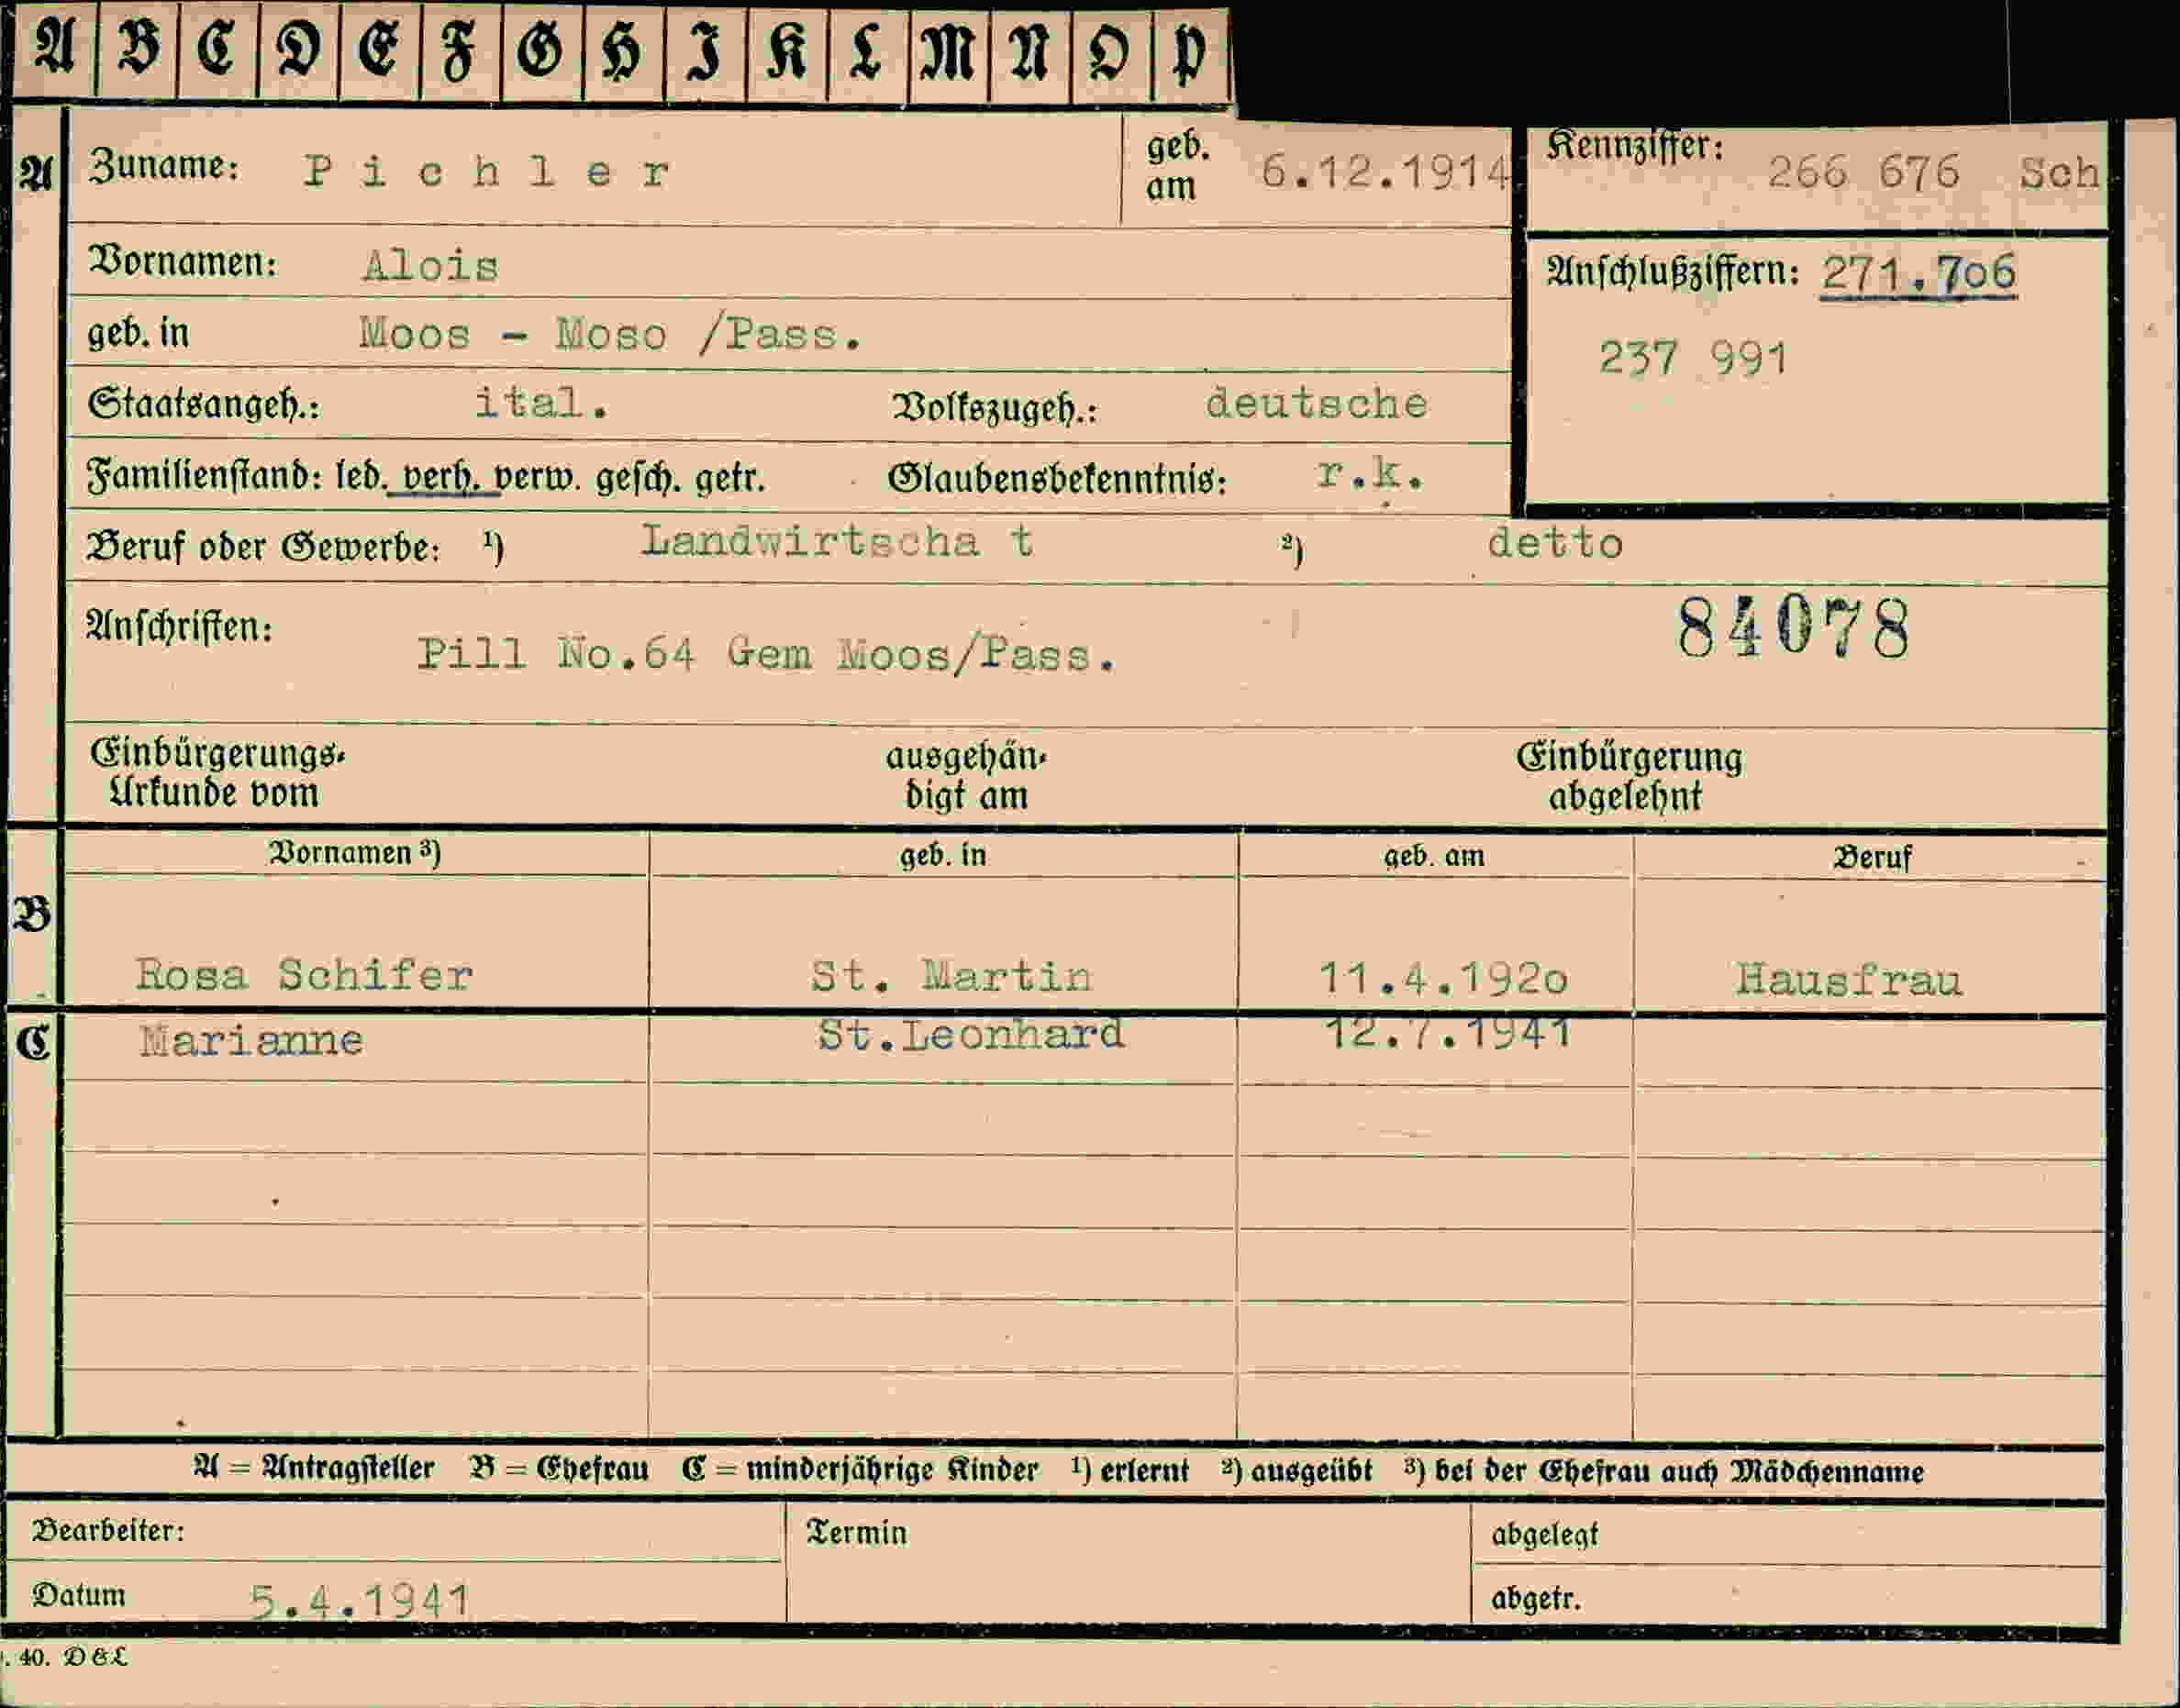 A B C D E F G H I K L M N O P
A Zuname: Pichler geb. am 6.12.1914 Kennziffer: 266 676 Sch
Vornamen: Alois Anschlußziffern: 271.7o6
geb. in Moos - Moso /Pass. 237 991
Staatsangeh.: ital. Volkszugeh.: deutsche
Familienstand: led. verh. verw. gesch. getr. Glaubensbekenntnis: r.k.
Beruf oder Gewerbe: ¹) Landwirtscha t ²) detto
84078
Anschriften: Pill No.64 Gem Moos/Pass.
Einbürgerungs- ausgehän- Einbürgerung
Urkunde vom digt am abgelehnt
Vornamen ³) geb. in geb. am Beruf
B
Rosa Schifer St. Martin 11.4.192o Hausfrau
C Marianne St.Leonhard 12.7.1941
A = Antragsteller B = Ehefrau C = minderjährige Kinder ¹) erlernt ²) ausgeübt ³) bei der Ehefrau auch Mädchenname
Bearbeiter: Termin abgelegt
Datum 5.4.1941 abgetr.
. 40. D & L